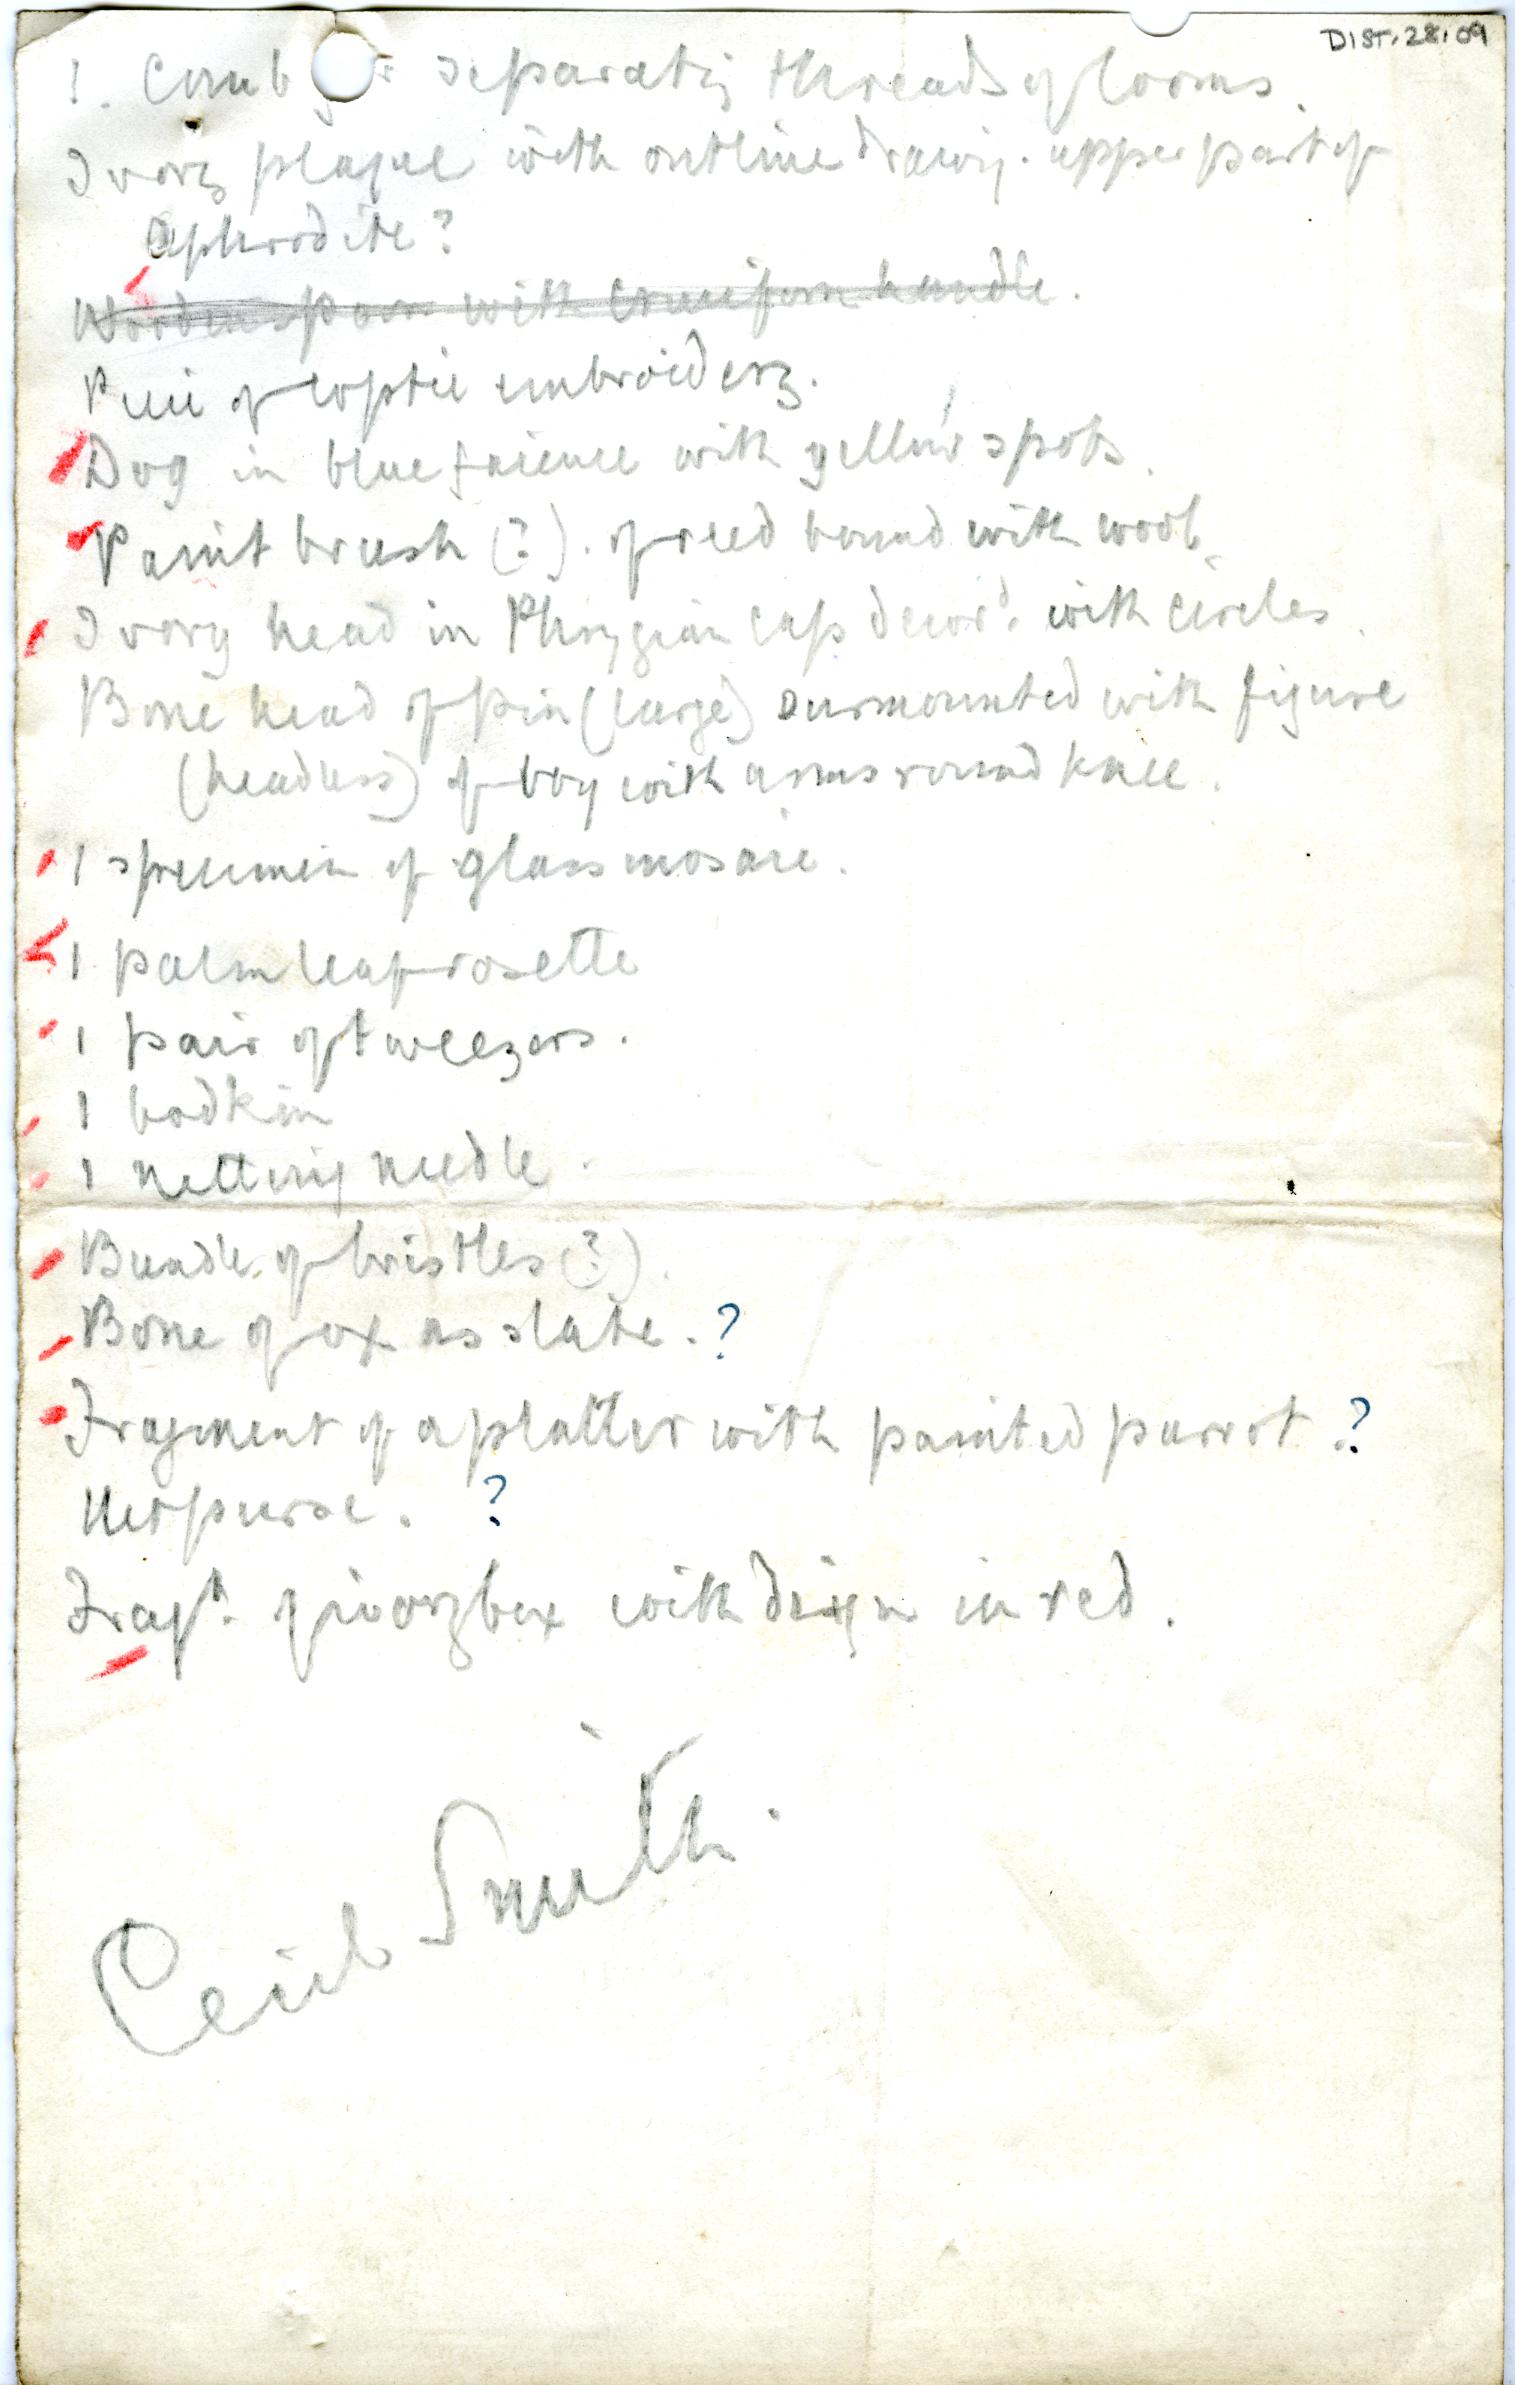 DIST.28.09
1. Comb for separating threads of looms.
Ivory plaque with outline drawing. upper part of
Aphrodite?
Wooden spoon with cruciform handle.
Piece of Coptic embroidery.
Dog in blue faience with yellow spots.
Paint brush (?). of reed bound with wool.
Ivory head in Phrygian cap decord. with circles.
Bone head of pin (large) surmounted with figure
(headless) of boy with arms round knee.
1 specimen of glass mosaic.
1 palm leaf rosette
1 pair of tweezers.
1 bodkin
1 netting needle.
Bundle of bristles (?).
Bone of ox as slate. ?
Fragment of a platter with painted parrot. ?
Net purse. ?
Fragt. of ivory box with design in red.
Cecil Smith.